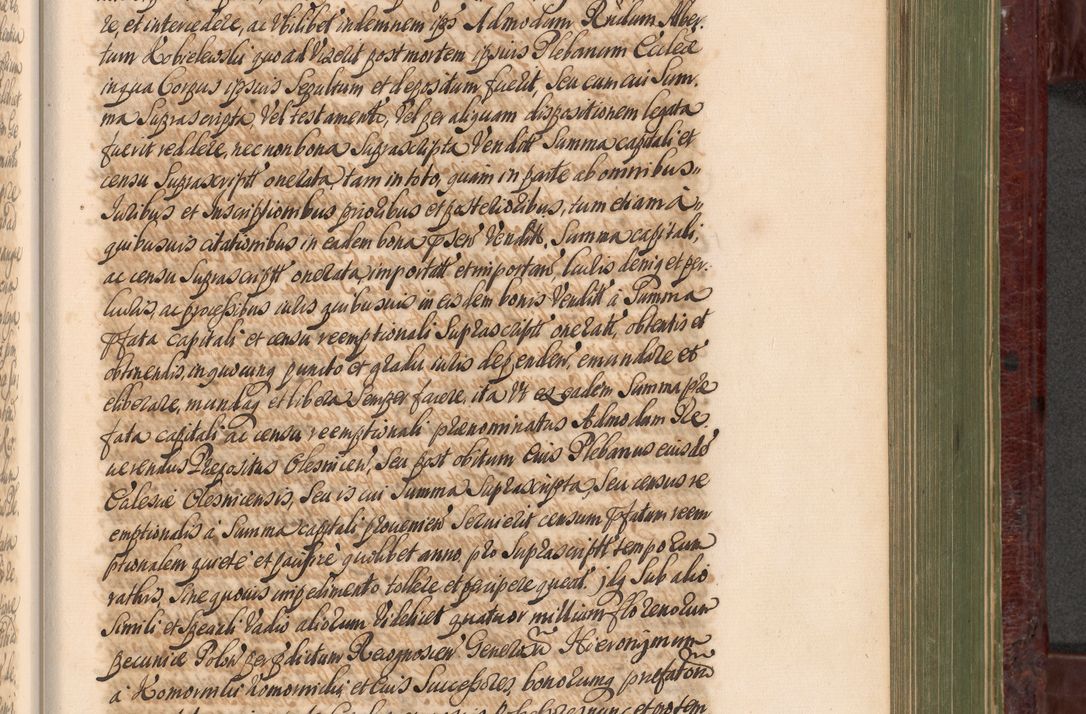 re, et intercedere, ac Vbilibet indemnem ipsũ Admodum Rndum Alber,
tum Kobielewski quoad Vixerit post mortem ipsius Plebanum Ecclesiæ
in qua Corpus ipsius Sepultum et depositum fuerit, Seu cum cui Sum,
ma Suprascripta, Vel testamento, Vel per aliquam dispositionem legata
fuerit reddere, nec non bona Suprascripta Vendită Summa capitali et
censu Suprascriptt onerata, tam in toto, quam in parte ab omnibus
Iuribus et Inscriptionibus prioribus et posterioribus, tum etiam à
quibusuis citationibus in eadem bona Vendită, Summa capitali,
ac censu Suprascriptt onerata, importatt et importan, lucris deniq et per,
lucris, ac processibus iuris quibusuis in eisdem bonis Venditt à Summa
pfata capitali et censu reemptionali Suprascriptt oneratt, obtentis et
obtinendis, in quocunq puncto et gradu iuris dependen, emundare et
eliberare, mundaq et libera Semper facere, ita Vt ex eadem Summa præ
fata capitali ac censu reemptionali prænominatus Admodum Re
uerendus Præpositus Olesnicen, Seu post obitum Eius Plebanus eiusdẽ
Ecclesiæ Olesnicensis, Seu is cui Summa Suprascripta, Seu census re
emptionalis à Summa capitali prouenien Seruierit censum pfatum reem
ptionalem quietè et pacificè quolibet anno, pro Suprascriptt temporum
rathis, Sine quouis impedimento tollere et percipere queat. Idq Sub alio
Simili et Speciali Vadio aliorum Videlicet quatuor millium florenorum
pecuniæ Polon per pdictum Recognoscen Generosũ Hieronymum
à Komorniki Komornicki, et Eius Successores, bonorumq præfatorũ